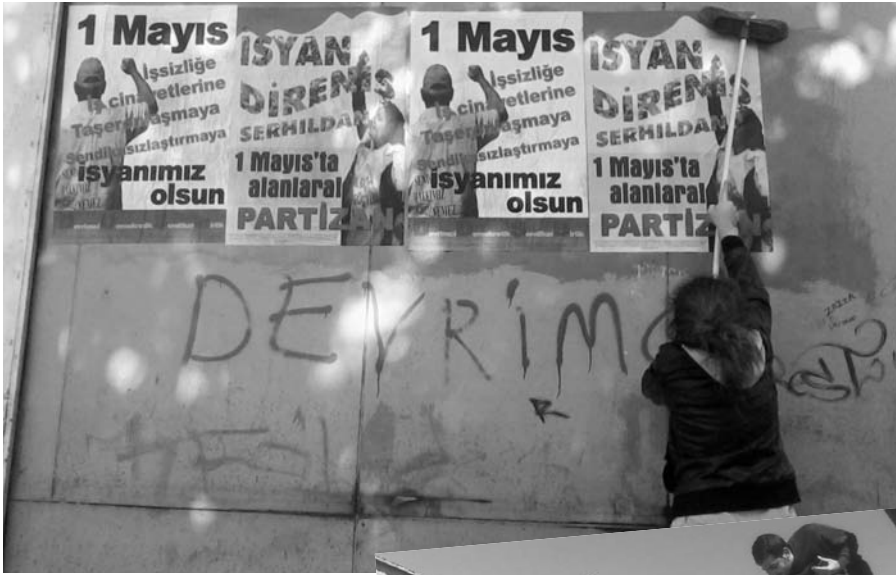 1 Mayıs
İşsizliğe
İş cinayetlerine
Taşeronlaşmaya
Sendikasızlaştırmaya
isyanımız
olsun
İSYAN
DİRENİŞ
SERHILDAN
1 Mayıs'ta
alanlara!
PARTİZAN
1 Mayıs
İşsizliğe
İş cinayetlerine
Taşeronlaşmaya
Sendikasızlaştırmaya
isyanımız
olsun
İSYAN
DİRENİŞ
SERHILDAN
1 Mayıs'ta
alanlara!
PARTİZAN
DEVRİM